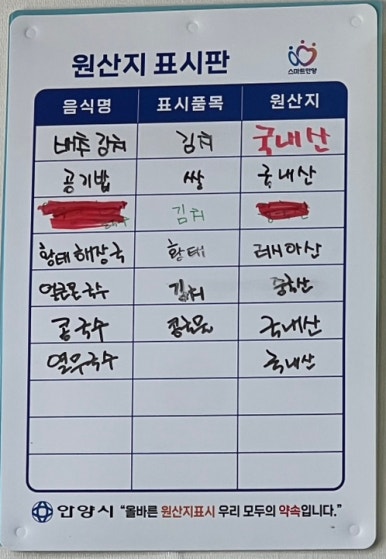 스마트안양
원산지 표시판
음식명 표시품목 원산지
배추김치 김치 국내산
공기밥 쌀 국내산
김치
황태해장국 황태 러시아산
얼큰국수 김치 중국산
콩국수 콩국물 국내산
열무국수 국내산
안양시 "올바른 원산지표시 우리 모두의 약속입니다."